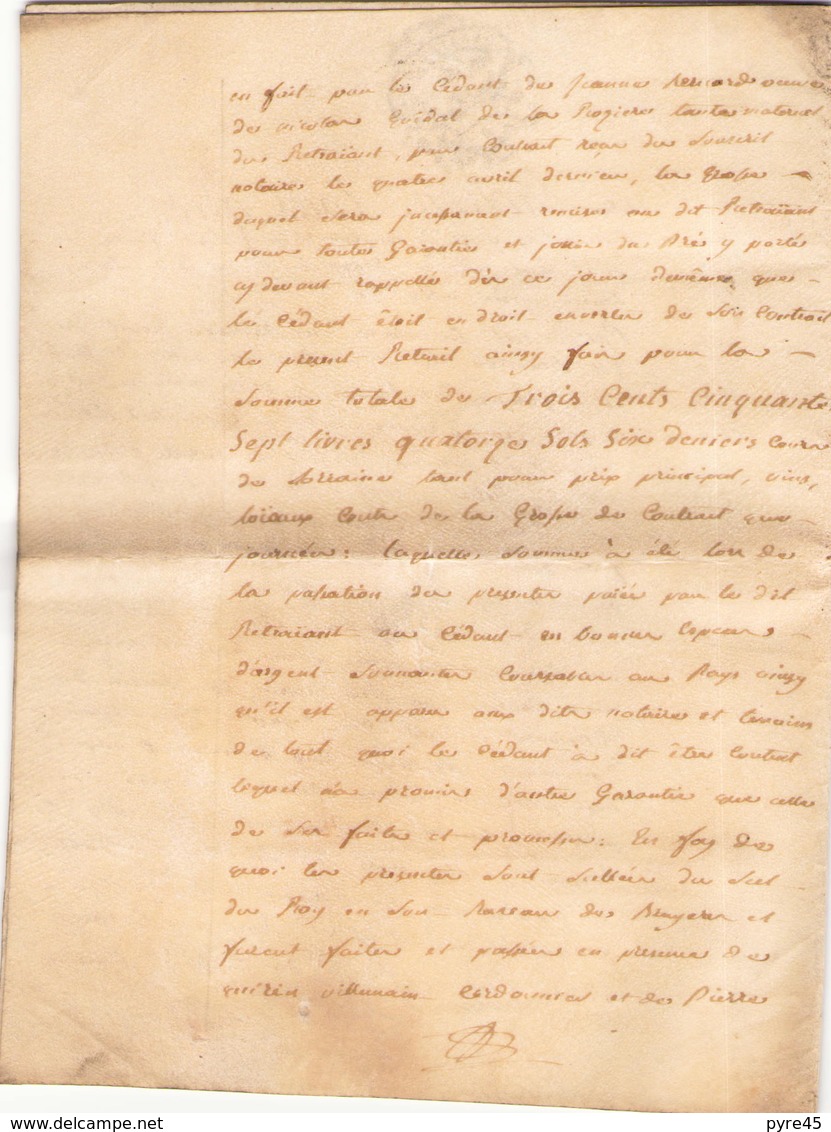 en fait par le Cédant de Jeanne Renard veuve
de nicolas Guidal de la Rogiere tante maternel
du Retraiant, par Contract reçu du Souscrit
notaire le quatre avril dernier, la Grosse
duquel sera incessament remise au dit Retraiant
pour toute Garantie et jouir du Pré y porté
cy devant rappellé dès ce jour de même que
le Cédant étoit en droit en vertu de son Contract
le present Retrait ainsy fait pour la
somme totale de Trois Cents Cinquante
Sept livres quatorze Sols Six deniers Cours
de Lorraine tant pour prix principal, vins,
loïaux Couts de la Grosse de Contract que
journées: laquelle somme à été lors de
la passation des presentes païée par le dit
Retraiant au Cédant en bonnes Especes
d'argent sonnantes Coursables au Pays ainsy
qu'il est apparu aux dits notaire et temoins
de tout quoi le Cédant à dit être Content
lequel n'a promis d'autre Garantie que celle
de ses faits et promesses: En foy de
quoi les presentes sont sellées du Scel
du Roy en son Bureau de Bruyeres et
furent faites et passées en presence de
quirin villemain Cordonnier et de Pierre
www.delcampe.net
pyre45